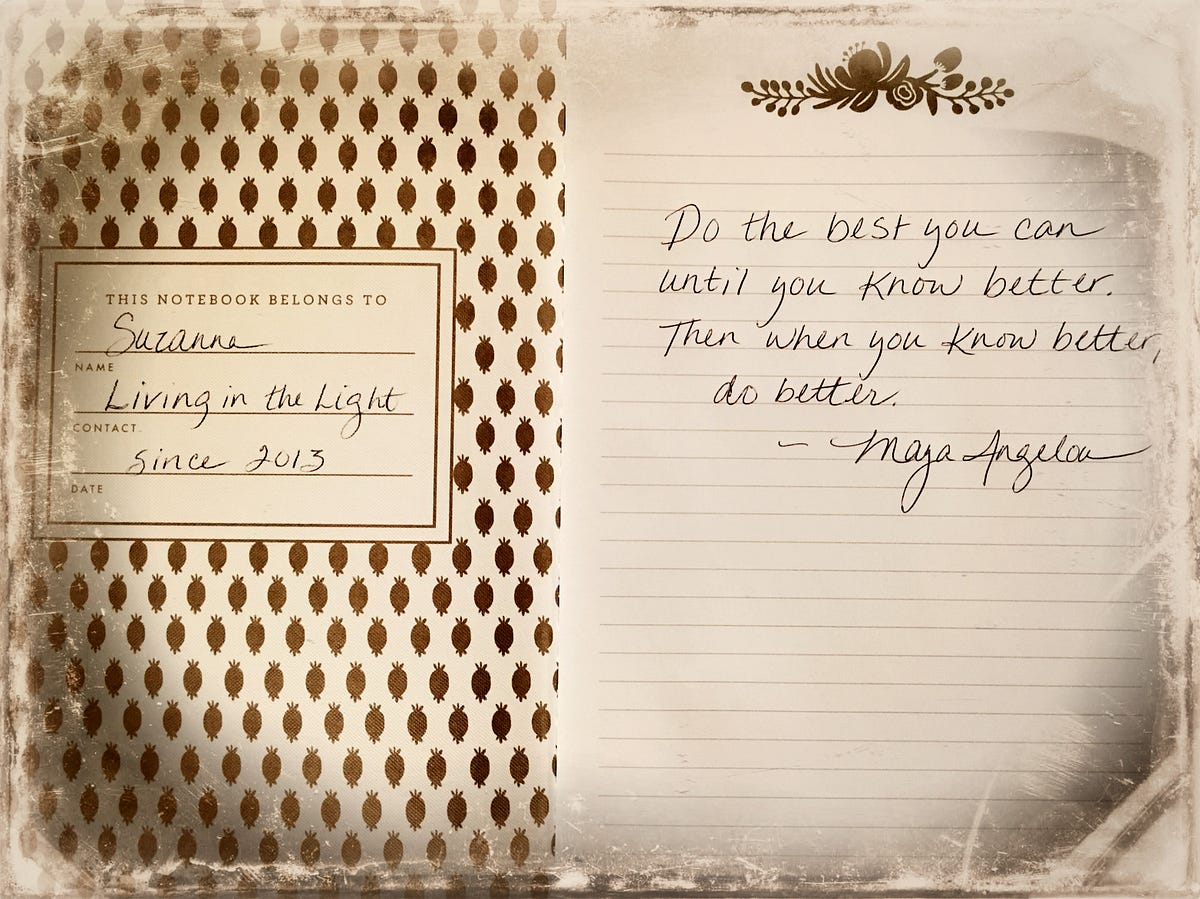 THIS NOTEBOOK BELONGS TO
Suzanne
NAME
Living in the Light
CONTACT
since 2013
DATE
Do the best you can
until you know better.
Then when you know better,
do better.
- Maya Angelou